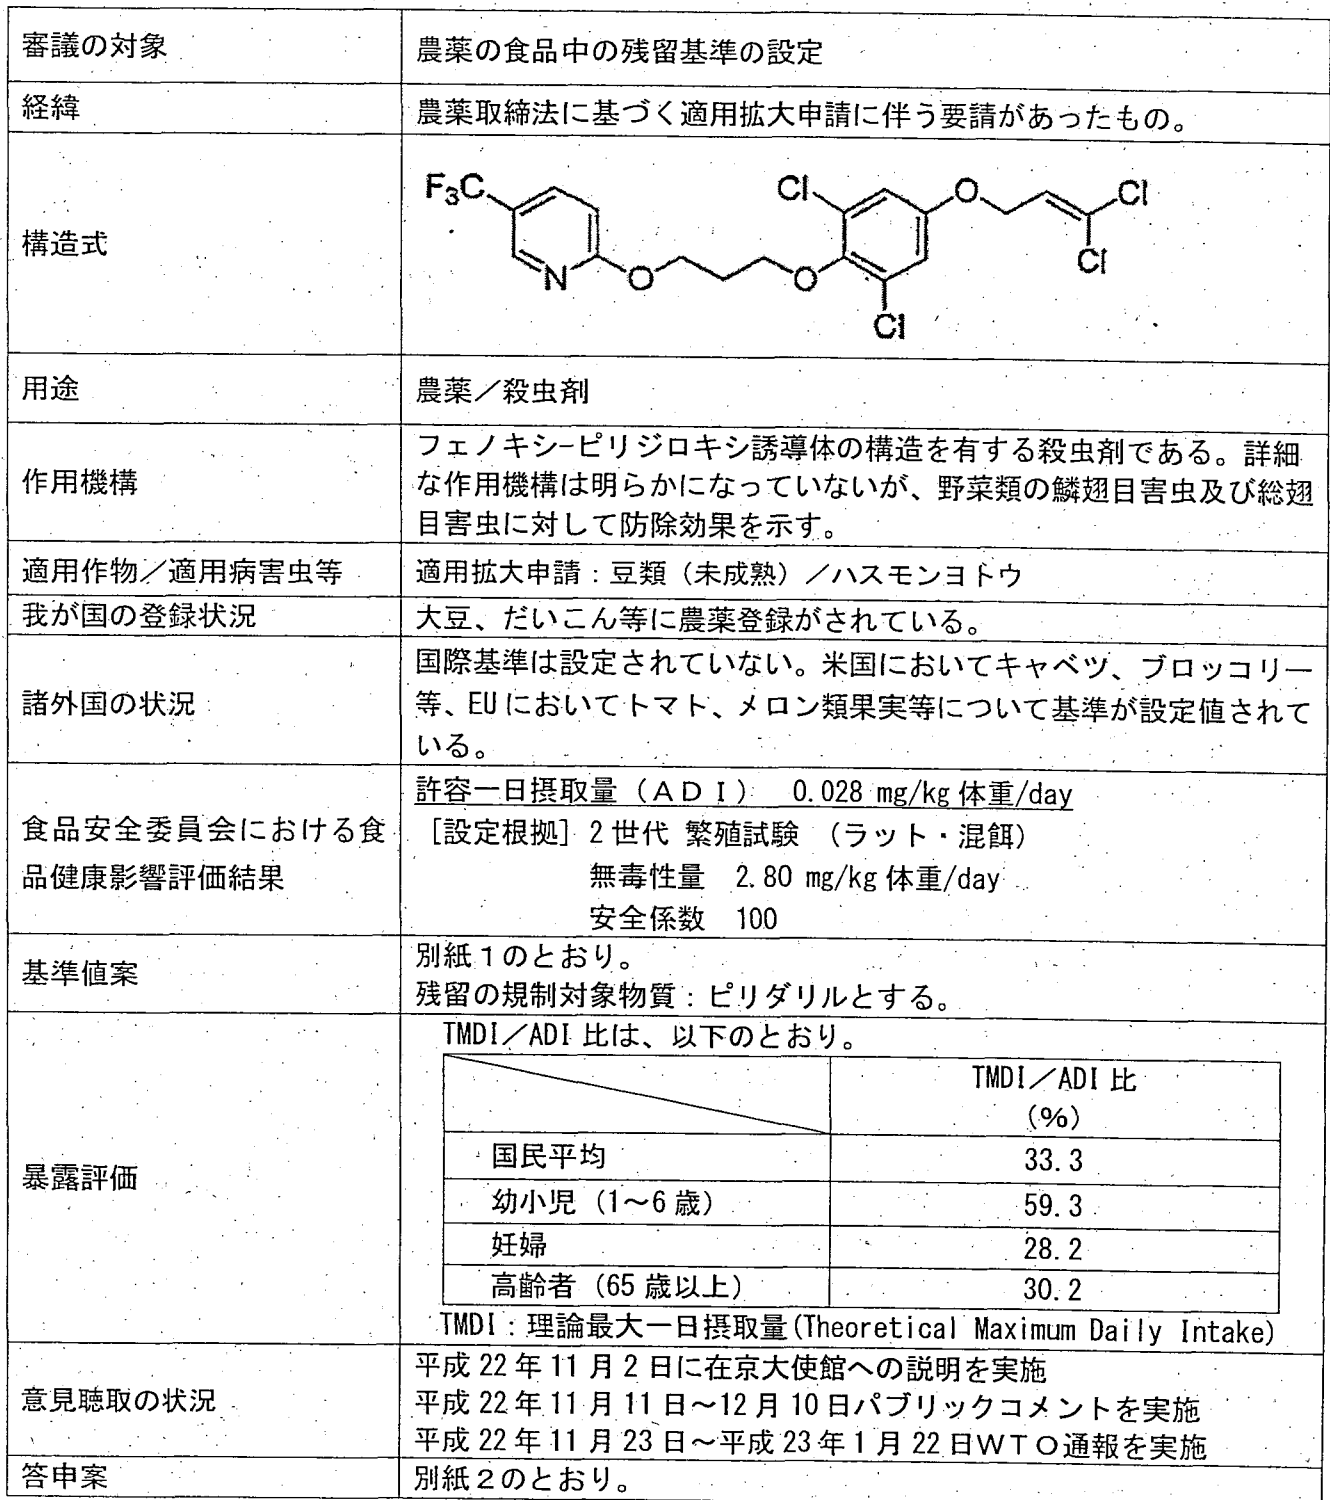 審議の対象
農薬の食品中の残留基準の設定
経緯
農薬取締法に基づく適用拡大申請に伴う要請があったもの。
構造式
F3C
N
O
O
Cl
Cl
O
Cl
Cl
用途
農薬／殺虫剤
作用機構
フェノキシ-ピリジロキシ誘導体の構造を有する殺虫剤である。詳細
な作用機構は明らかになっていないが、野菜類の鱗翅目害虫及び総翅
目害虫に対して防除効果を示す。
適用作物／適用病害虫等
適用拡大申請：豆類（未成熟）／ハスモンヨトウ
我が国の登録状況
大豆、だいこん等に農薬登録がされている。
諸外国の状況
国際基準は設定されていない。米国においてキャベツ、ブロッコリー
等、EUにおいてトマト、メロン類果実等について基準が設定値されて
いる。
食品安全委員会における食
品健康影響評価結果
許容一日摂取量（ＡＤＩ） 0.028 mg/kg 体重/day
［設定根拠］2世代 繁殖試験 （ラット・混餌）
無毒性量 2.80 mg/kg 体重/day
安全係数 100
基準値案
別紙１のとおり。
残留の規制対象物質：ピリダリルとする。
暴露評価
TMDI／ADI 比は、以下のとおり。
TMDI／ADI 比
（%）
国民平均 33.3
幼小児（1～6 歳） 59.3
妊婦 28.2
高齢者（65 歳以上） 30.2
TMDI：理論最大一日摂取量(Theoretical Maximum Daily Intake)
意見聴取の状況
平成 22 年 11 月 2 日に在京大使館への説明を実施
平成 22 年 11 月 11 日～12 月 10 日パブリックコメントを実施
平成 22 年 11 月 23 日～平成 23 年 1 月 22 日ＷＴＯ通報を実施
答申案
別紙２のとおり。